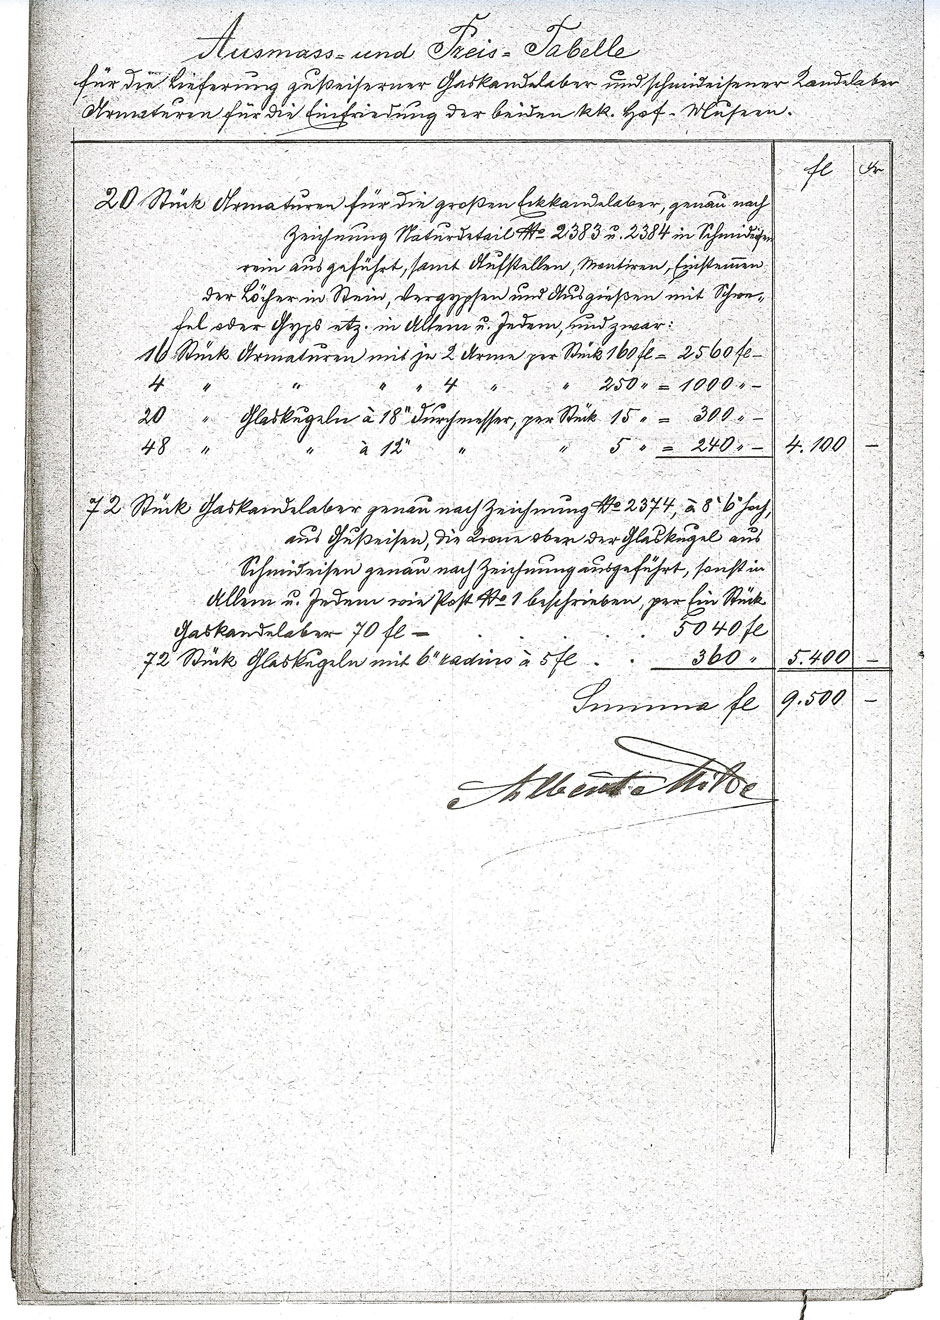 Ausmass- und Preis-Tabelle
für die Lieferung gußeiserner Gaskandelaber und schmideisener Kandelaber
Armaturen für die Einfriedung der beiden kk. Hof-Museen.
fl Kr
20 Stück Armaturen für die großen Eckkandelaber, genau nach
Zeichnung Naturdetail No 2383 u. 2384 in Schmideisen
rein ausgeführt, samt Aufstellen, Montiren, Einstemmen
der Löcher in Stein, Vergypsen und Ausgießen mit Schwe-
fel oder Gyps etz. in Allem u. Jedem, und zwar:
16 Stück Armaturen mit je 2 Arme per Stück 160 fl = 2560 fl –
4 " " " " 4 " " 250 " = 1000 " –
20 " Glaskugeln à 18" Durchmesser, per Stück 15 " = 300 " –
48 " " à 12" " " 5 " = 240 " – 4.100 –
72 Stück Gaskandelaber genau nach Zeichnung No 2374, à 8' 6" hoch,
aus Gußeisen, die Krone ober der Glaskugel aus
Schmideisen genau nach Zeichnung ausgeführt, sonst in
Allem u. Jedem wie Post No 1 beschrieben, per Ein Stück
Gaskandelaber 70 fl – . . . . 5040 fl
72 Stück Glaskugeln mit 6" radius à 5 fl . . 360 " 5.400 –
Summa fl 9.500 –
Albert Milde